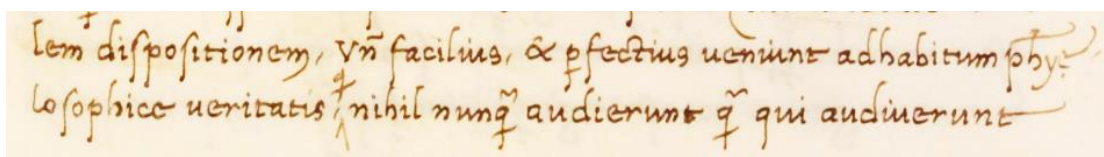 lem dispositionem, vñ facilius, & ꝑfectius ueniunt adhabitum phỹ
losophicę ueritatis, nihil nunq̃ audierunt q̃ qui audiuerunt